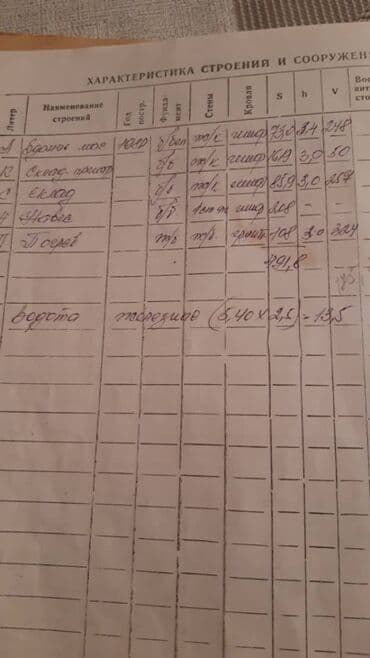 ХАРАКТЕРИСТИКА СТРОЕНИЙ И СООРУЖЕН
Литер Наименование строений Год постр. Фунда- мент Стены Кровля S h V
А б/бет т/к шиф 73,0 3,4 248
К Склад б/б т/к шиф 16,9 3,0 50
С Склад б/б т/к шиф 85,9 3,0 257
Навес б/б шиф 208 — —
П Погреб ж/б ж/б 108 3,0 324
491,8
ворота железные (5,40 х 2,5) = 13,5